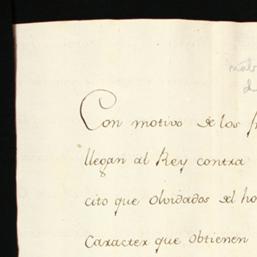 Con motivo de los
llegan al Rey contra
cito que olvidados del ho
Caracter que obtienen